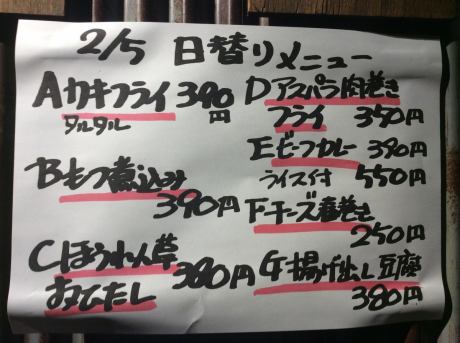 2/5 日替りメニュー
Aカキフライ 390円
タルタル
Bもつ煮込み
390円
Cほうれん草
おひたし 380円
Dアスパラ肉巻き
フライ 350円
Eビーフカレー 390円
ライス付 550円
Fチーズ春巻き
250円
G揚げ出し豆腐
380円